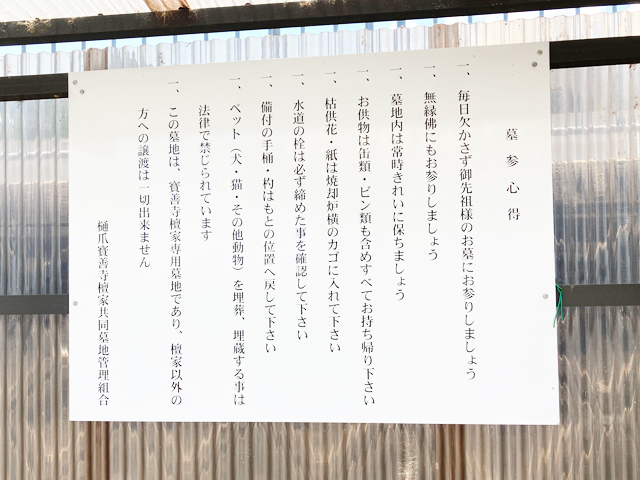 墓参心得
一、毎日欠かさず御先祖様のお墓にお参りしましょう
一、無縁佛にもお参りしましょう
一、墓地内は常時きれいに保ちましょう
一、お供物は缶類・ビン類も含めすべてお持ち帰り下さい
一、枯供花・紙は焼却炉横のカゴに入れて下さい
一、水道の栓は必ず締めた事を確認して下さい
一、備付の手桶・杓はもとの位置へ戻して下さい
一、ペット（犬・猫・その他動物）を埋葬、埋蔵する事は
法律で禁じられています
一、この墓地は、寳善寺檀家専用墓地であり、檀家以外の
方への譲渡は一切出来ません
樋爪寳善寺檀家共同墓地管理組合